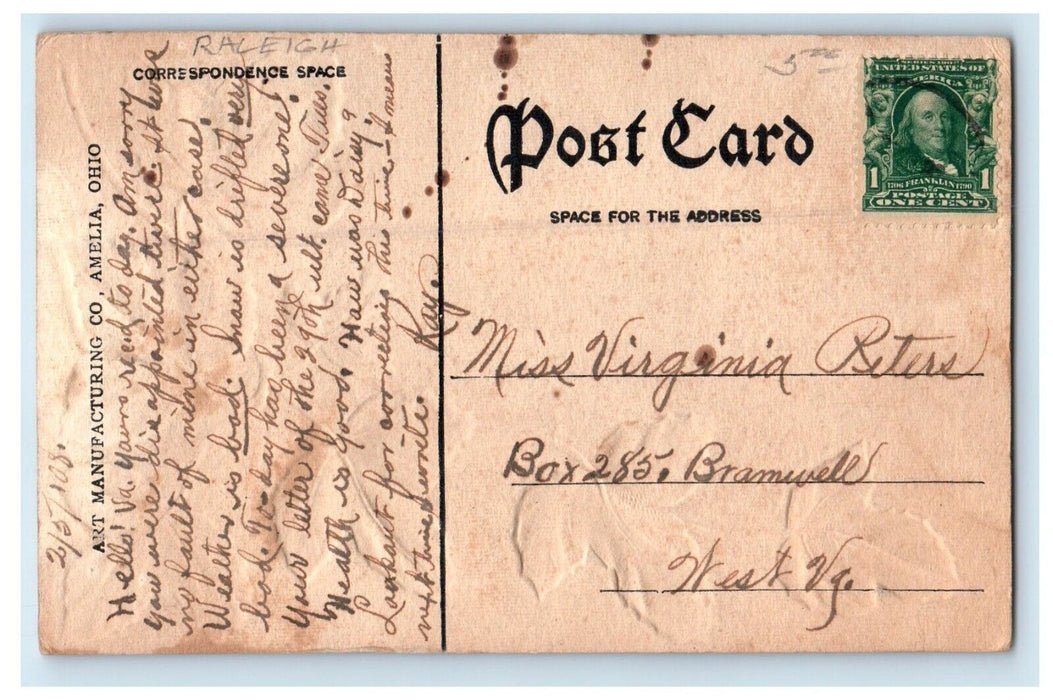 RALEIGH
CORRESPONDENCE SPACE
ART MANUFACTURING CO, AMELIA, OHIO
2/5/08.
Hello! Va. Yours rec'd to day. Am sorry
you were disappointed twice. It were
no fault of mine in either case.
Weather is bad. Snow is drifted very
bad. To-day has been a severe one.
Your letter of the 29th ult. came Tues.
Health is good. How was Daisy?
Look out for correcting this time - I mean
next time I write.
Ray.
Post Card
SPACE FOR THE ADDRESS
5
SERIES 1902
UNITED STATES OF
AMERICA
1706 FRANKLIN 1790
1 POSTAGE 1
ONE CENT
Miss Virginia Peters
Box 285, Bramwell
West Va.